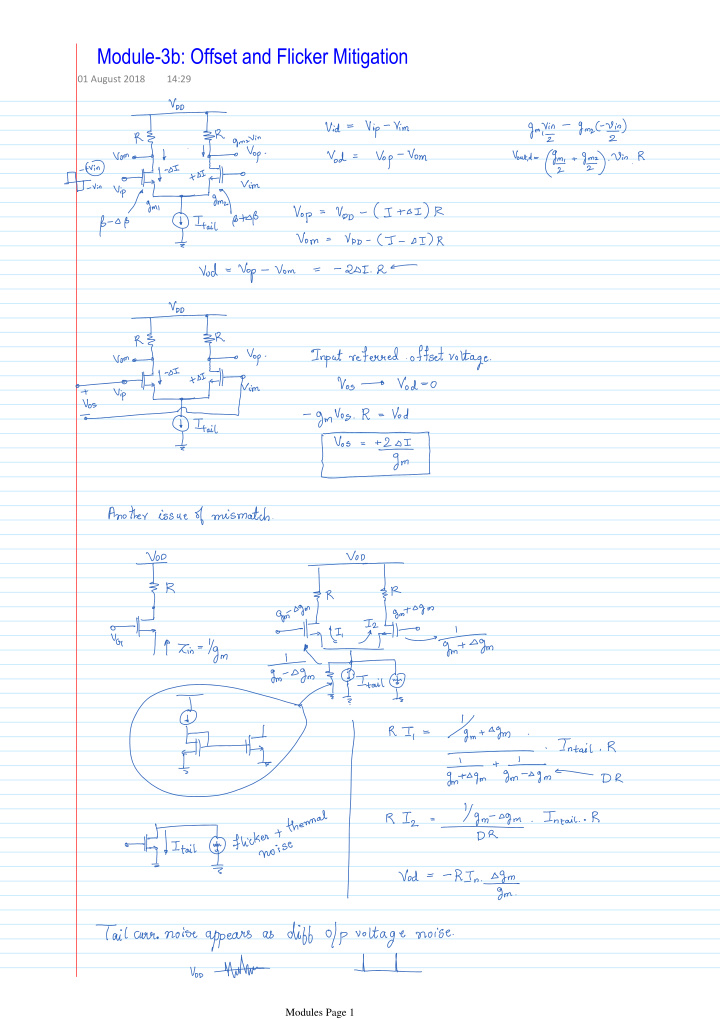 Module-3b: Offset and Flicker Mitigation
01 August 2018 14:29
VDD
R R gm2 Vin
Vom Vop
-ΔI +ΔI
(Vin)
-Vin
Vip Vim
gm1 gm2
β-Δβ Itail β+Δβ
Vid = Vip - Vim
Vod = Vop - Vom
gm1 Vin/2 - gm2 (-Vin)/2
Voutd = (gm1/2 + gm2/2) . Vin R
Vop = VDD - (I+ΔI) R
Vom = VDD - (I-ΔI) R
Vod = Vop - Vom = -2ΔI.R ←
VDD
R R
Vom Vop.
-ΔI +ΔI
+ Vip Vim
Vos
-
Itail
Input referred offset voltage.
Vos → Vod=0
- gm Vos. R = Vod
Vos = +2 ΔI / gm
Another issue of mismatch.
VDD
R
VG
↑ Zin = 1/gm
VDD
R R
gm-Δgm gm+Δgm
I1 I2
1/(gm+Δgm)
1/(gm-Δgm)
Itail
R I1 = (1/(gm+Δgm)) / (1/(gm+Δgm) + 1/(gm-Δgm)) . Intail . R
DR
R I2 = (1/(gm-Δgm)) / DR . Intail . R
Itail flicker + thermal
noise
Vod = -R In. Δgm/gm
Tail curr. noise appears as diff o/p voltage noise.
VDD
Modules Page 1